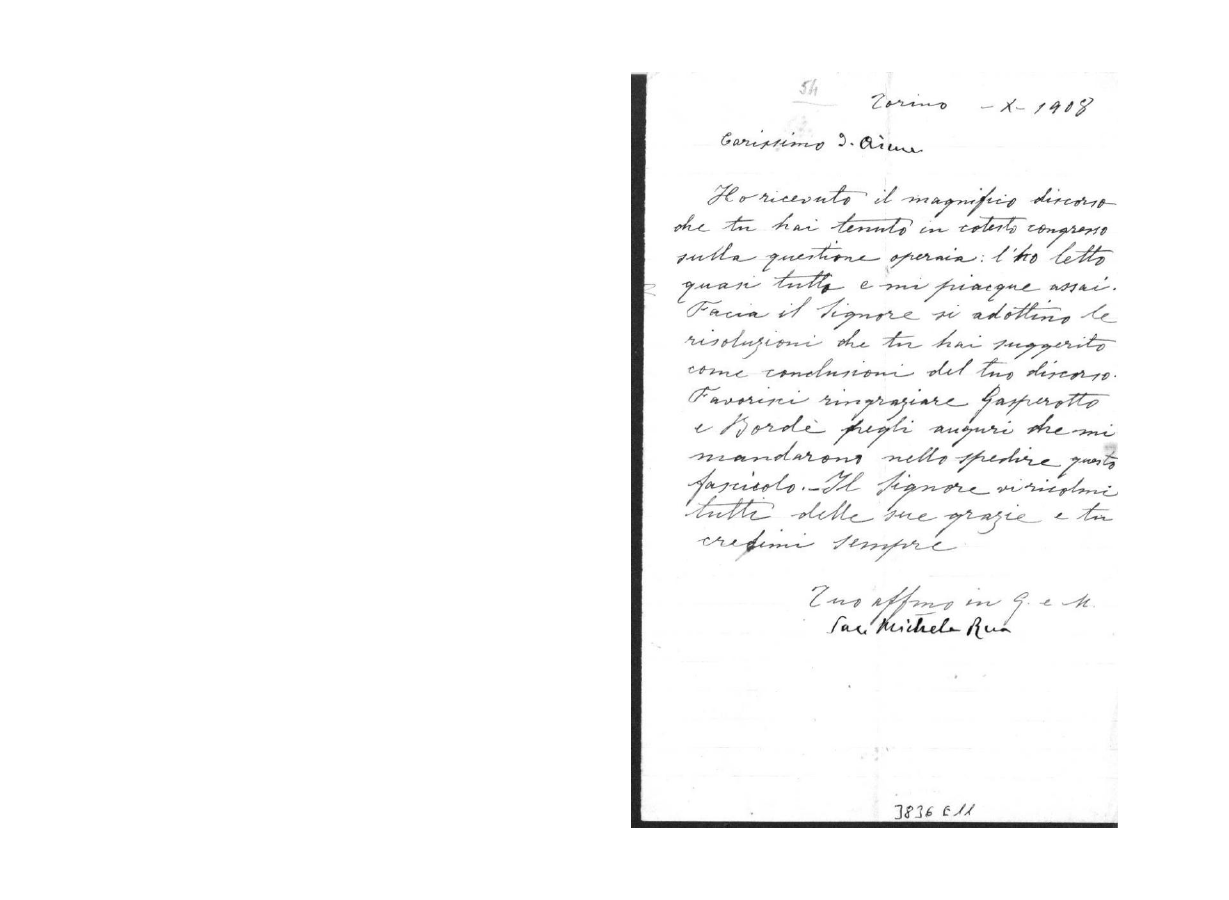 54
Torino - X - 1908
Carissimo D. Aime
Ho ricevuto il magnifico discorso
che tu hai tenuto in cotesto congresso
sulla questione operaia: l'ho letto
quasi tutto e mi piacque assai.
Facia il Signore si adottino le
risoluzioni che tu hai suggerito
come conclusioni del tuo discorso.
Favorisci ringraziare Gasperotto
e Bordè pegli auguri che mi
mandarono nello spedire questo
fascicolo. - Il Signore vi ricolmi
tutti delle sue grazie e tu
credimi sempre
Tuo affmo in G. e M.
Sac. Michele Rua
3836 E11